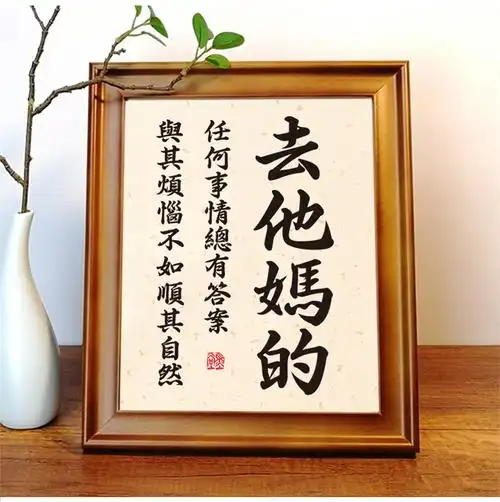 去他媽的
任何事情總有答案
與其煩惱不如順其自然